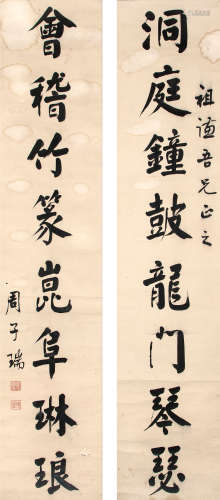 洞庭鐘皷龍門琴瑟
祖謐吾兄正之
會稽竹篆崑阜琳琅
周子瑞